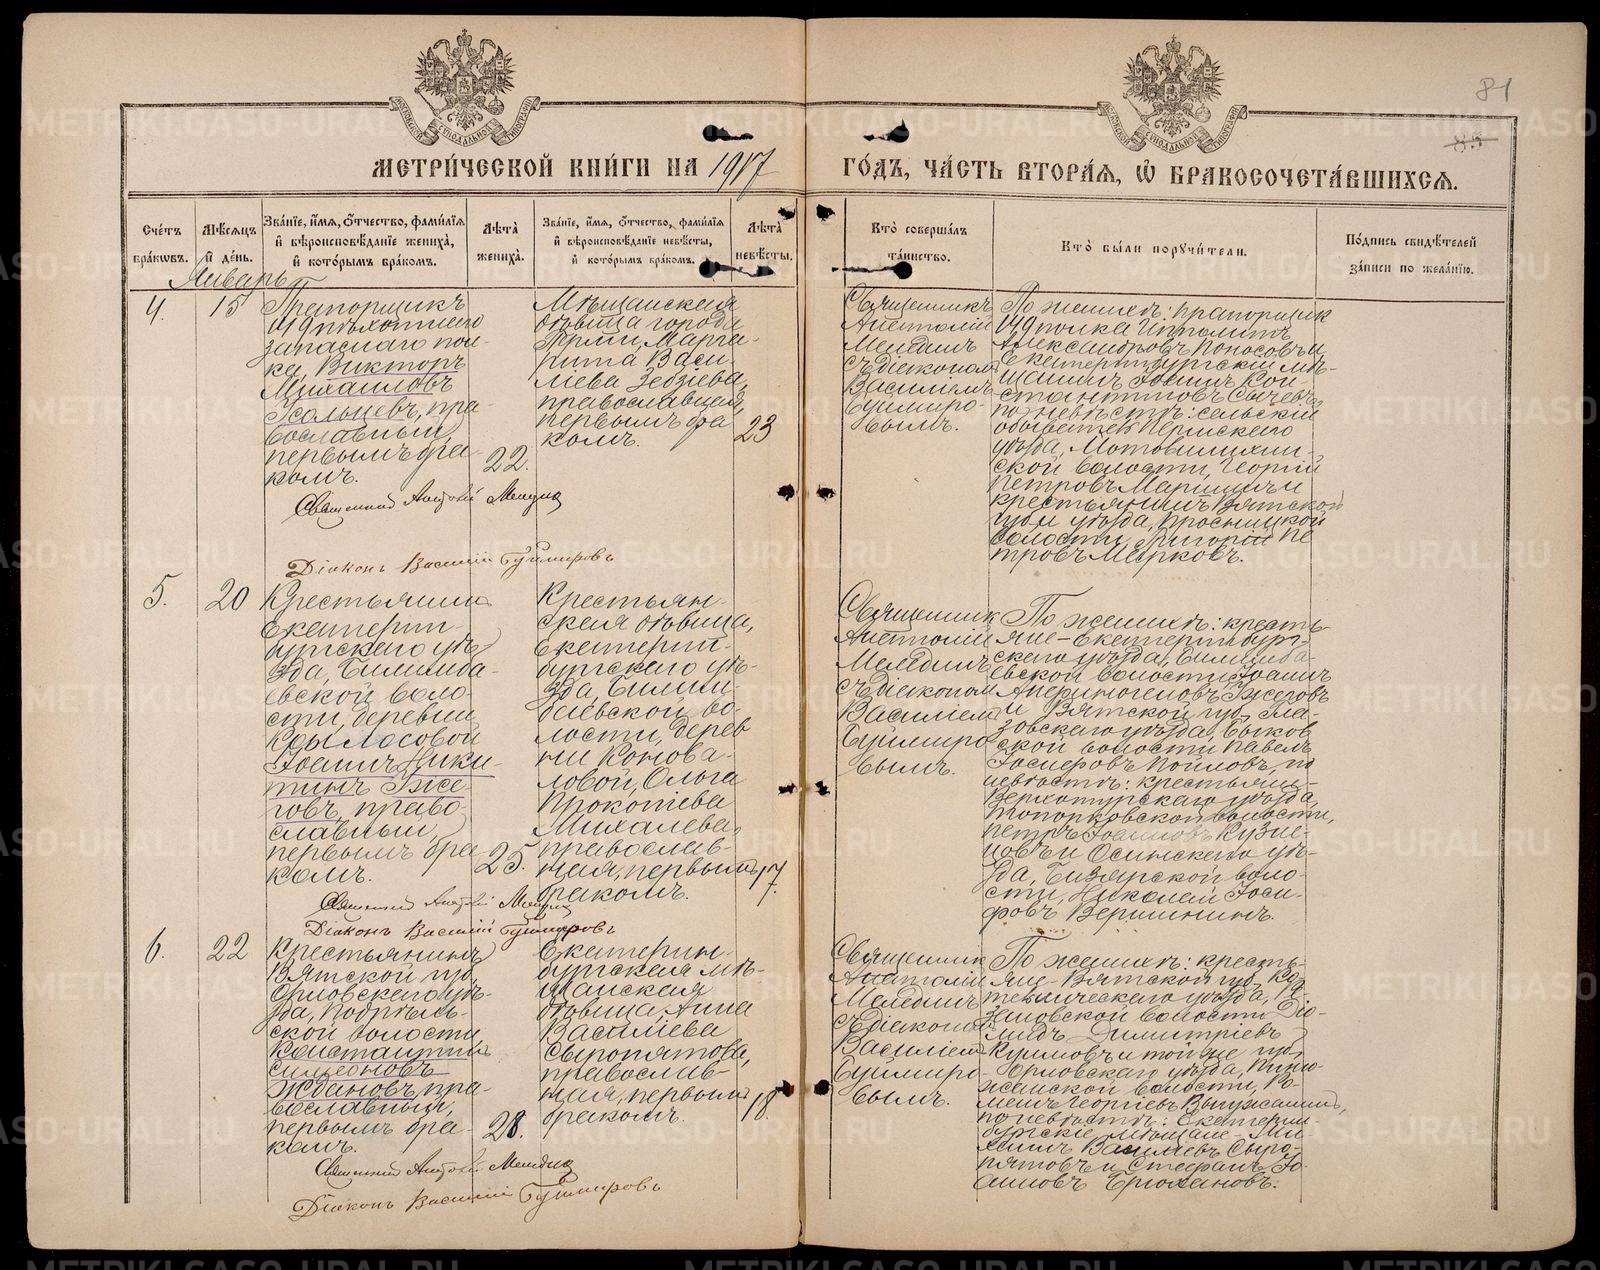 81
85
МОСКОВСКОЙ СѴНОДАЛЬНОЙ ТИПОГРАФІИ
МОСКОВСКОЙ СѴНОДАЛЬНОЙ ТИПОГРАФІИ
МЕТРИ́ЧЕСКОЙ КНИ́ГИ НА 1917 ГО́ДЪ, ЧА́СТЬ ВТОРА́Я, Ѽ БРАКОСОЧЕТА́ВШИХСЯ.
Сче́тъ бра́кѡвъ.
Мѣ́сяцъ и҆ де́нь.
Зва́нїе, и҆́мя, ѻ҆́тчество, фами́лїя и҆ вѣроисповѣ́данїе жениха̀, и҆ кото́рымъ бра́комъ.
Лѣ́та жениха̀.
Зва́нїе, и҆́мя, ѻ҆́тчество, фами́лїя и҆ вѣроисповѣ́данїе невѣ́сты, и҆ кото́рымъ бра́комъ.
Лѣ́та невѣ́сты.
Кто̀ соверша́лъ та́инство.
Кто̀ бы́ли поручи́тели.
По́дпись свидѣ́телей за́писи по жела́нїю.
Январь
4.
15
Прапорщикъ
149 пѣхотнаго
запаснаго пол-
ка, Викторъ
Михаиловъ
Усольцевъ, пра-
вославный,
первымъ бра-
комъ.
22.
Мѣщанская
дѣвица города
Перми, Марга-
рита Васи-
лiева Зебзѣева,
православная,
первымъ бра
комъ.
23
Священникъ
Анатолій
Мелединъ
съ діакономъ
Василіемъ
Бушмиро-
вымъ.
По женихѣ: прапорщик
149 полка Ипполитъ
Александровъ Поносовъ и
Екатеринбургскій мѣ-
щанинъ Іоаннъ Кон-
стантиновъ Сычевъ,
по невѣстѣ: сельскій
обыватель Пермскаго
уѣзда, Мотовилихин-
ской волости, Георгій
Петровъ Маришинъ и
крестьянинъ Вятской
губ. и уѣзда, Просницкой
волости, Григорій Пе
тровъ Марковъ.
Священникъ Анатолій Меледин
Діаконъ Василій Бушмировъ
5.
20
Крестьянинъ
Екатерин-
бургскаго уѣ-
зда, Билимба-
евской воло-
сти, деревни
Крылосовой
Іоаннъ Ники-
тинъ Ѣже-
говъ, право-
славный,
первымъ бра-
комъ.
25.
Крестьян-
ская дѣвица,
Екатерин-
бургскаго уѣ-
зда, Билим-
баевской во-
лости, дерев
ни Конова-
ловой, Ольга
Прокопіева
Михалева,
православ-
ная, первымъ
бракомъ.
17.
Священник
Анатолій
Меледин
съ діакономъ
Василіемъ
Бушмиро
вымъ.
По женихѣ: кресть-
яне – Екатеринбург-
скаго уѣзда, Билимба-
евской волости Іоаннъ
Ѣжеговъ
и Вятской губ., Гла-
зовскаго уѣзда,
ской волости Павелъ
Іосифовъ по
невѣстѣ: крестьяне –
Верхотурскаго уѣзда,
Топорковской волости,
Петръ Іоанновъ Кузне-
цовъ и Осинскаго уѣ-
зда, Бизярской воло-
сти, Николай Іоси-
фовъ Вершининъ.
Священник Анатолій Меледин
Діаконъ Василій Бушмировъ
6.
22
Крестьянинъ
Вятской губ.
Орловскаго уѣ-
зда, Подрѣль-
ской волости
Константинъ
Симеоновъ
Ждановъ, пра-
вославный,
первымъ бра-
комъ.
28.
Екатерин-
бургская мѣ-
щанская
дѣвица Анна
Василіева
Сыропятова,
православ-
ная, первымъ
бракомъ.
18.
Священник
Анатолій
Меледин
съ діакономъ
Василіемъ
Бушмиро-
вымъ.
По женихѣ: кресть-
яне Вятской губ., Ко
тельническаго уѣзда,
волости Діо-
мидъ Димитріевъ
и той же губ.,
Орловскаго уѣзда, Пиню-
жанской волости, Ро-
манъ Георгіевъ Выпужанинъ,
по невѣстѣ: Екатерин-
бургскіе мѣщане Ми-
хаилъ Василіевъ Сыро-
пятовъ и Стефанъ Іо-
анновъ Брюхановъ.
Священник Анатолій Меледин
Діаконъ Василій Бушмировъ
METRIKI.GASO-URAL.RU